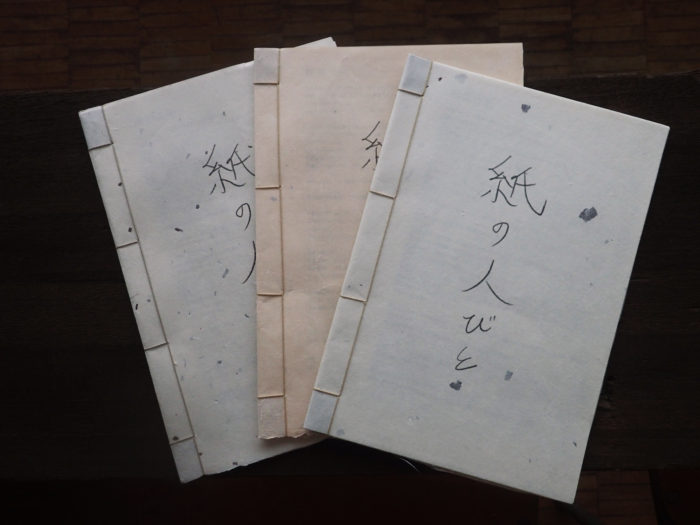 紙の人
紙
紙の人びと